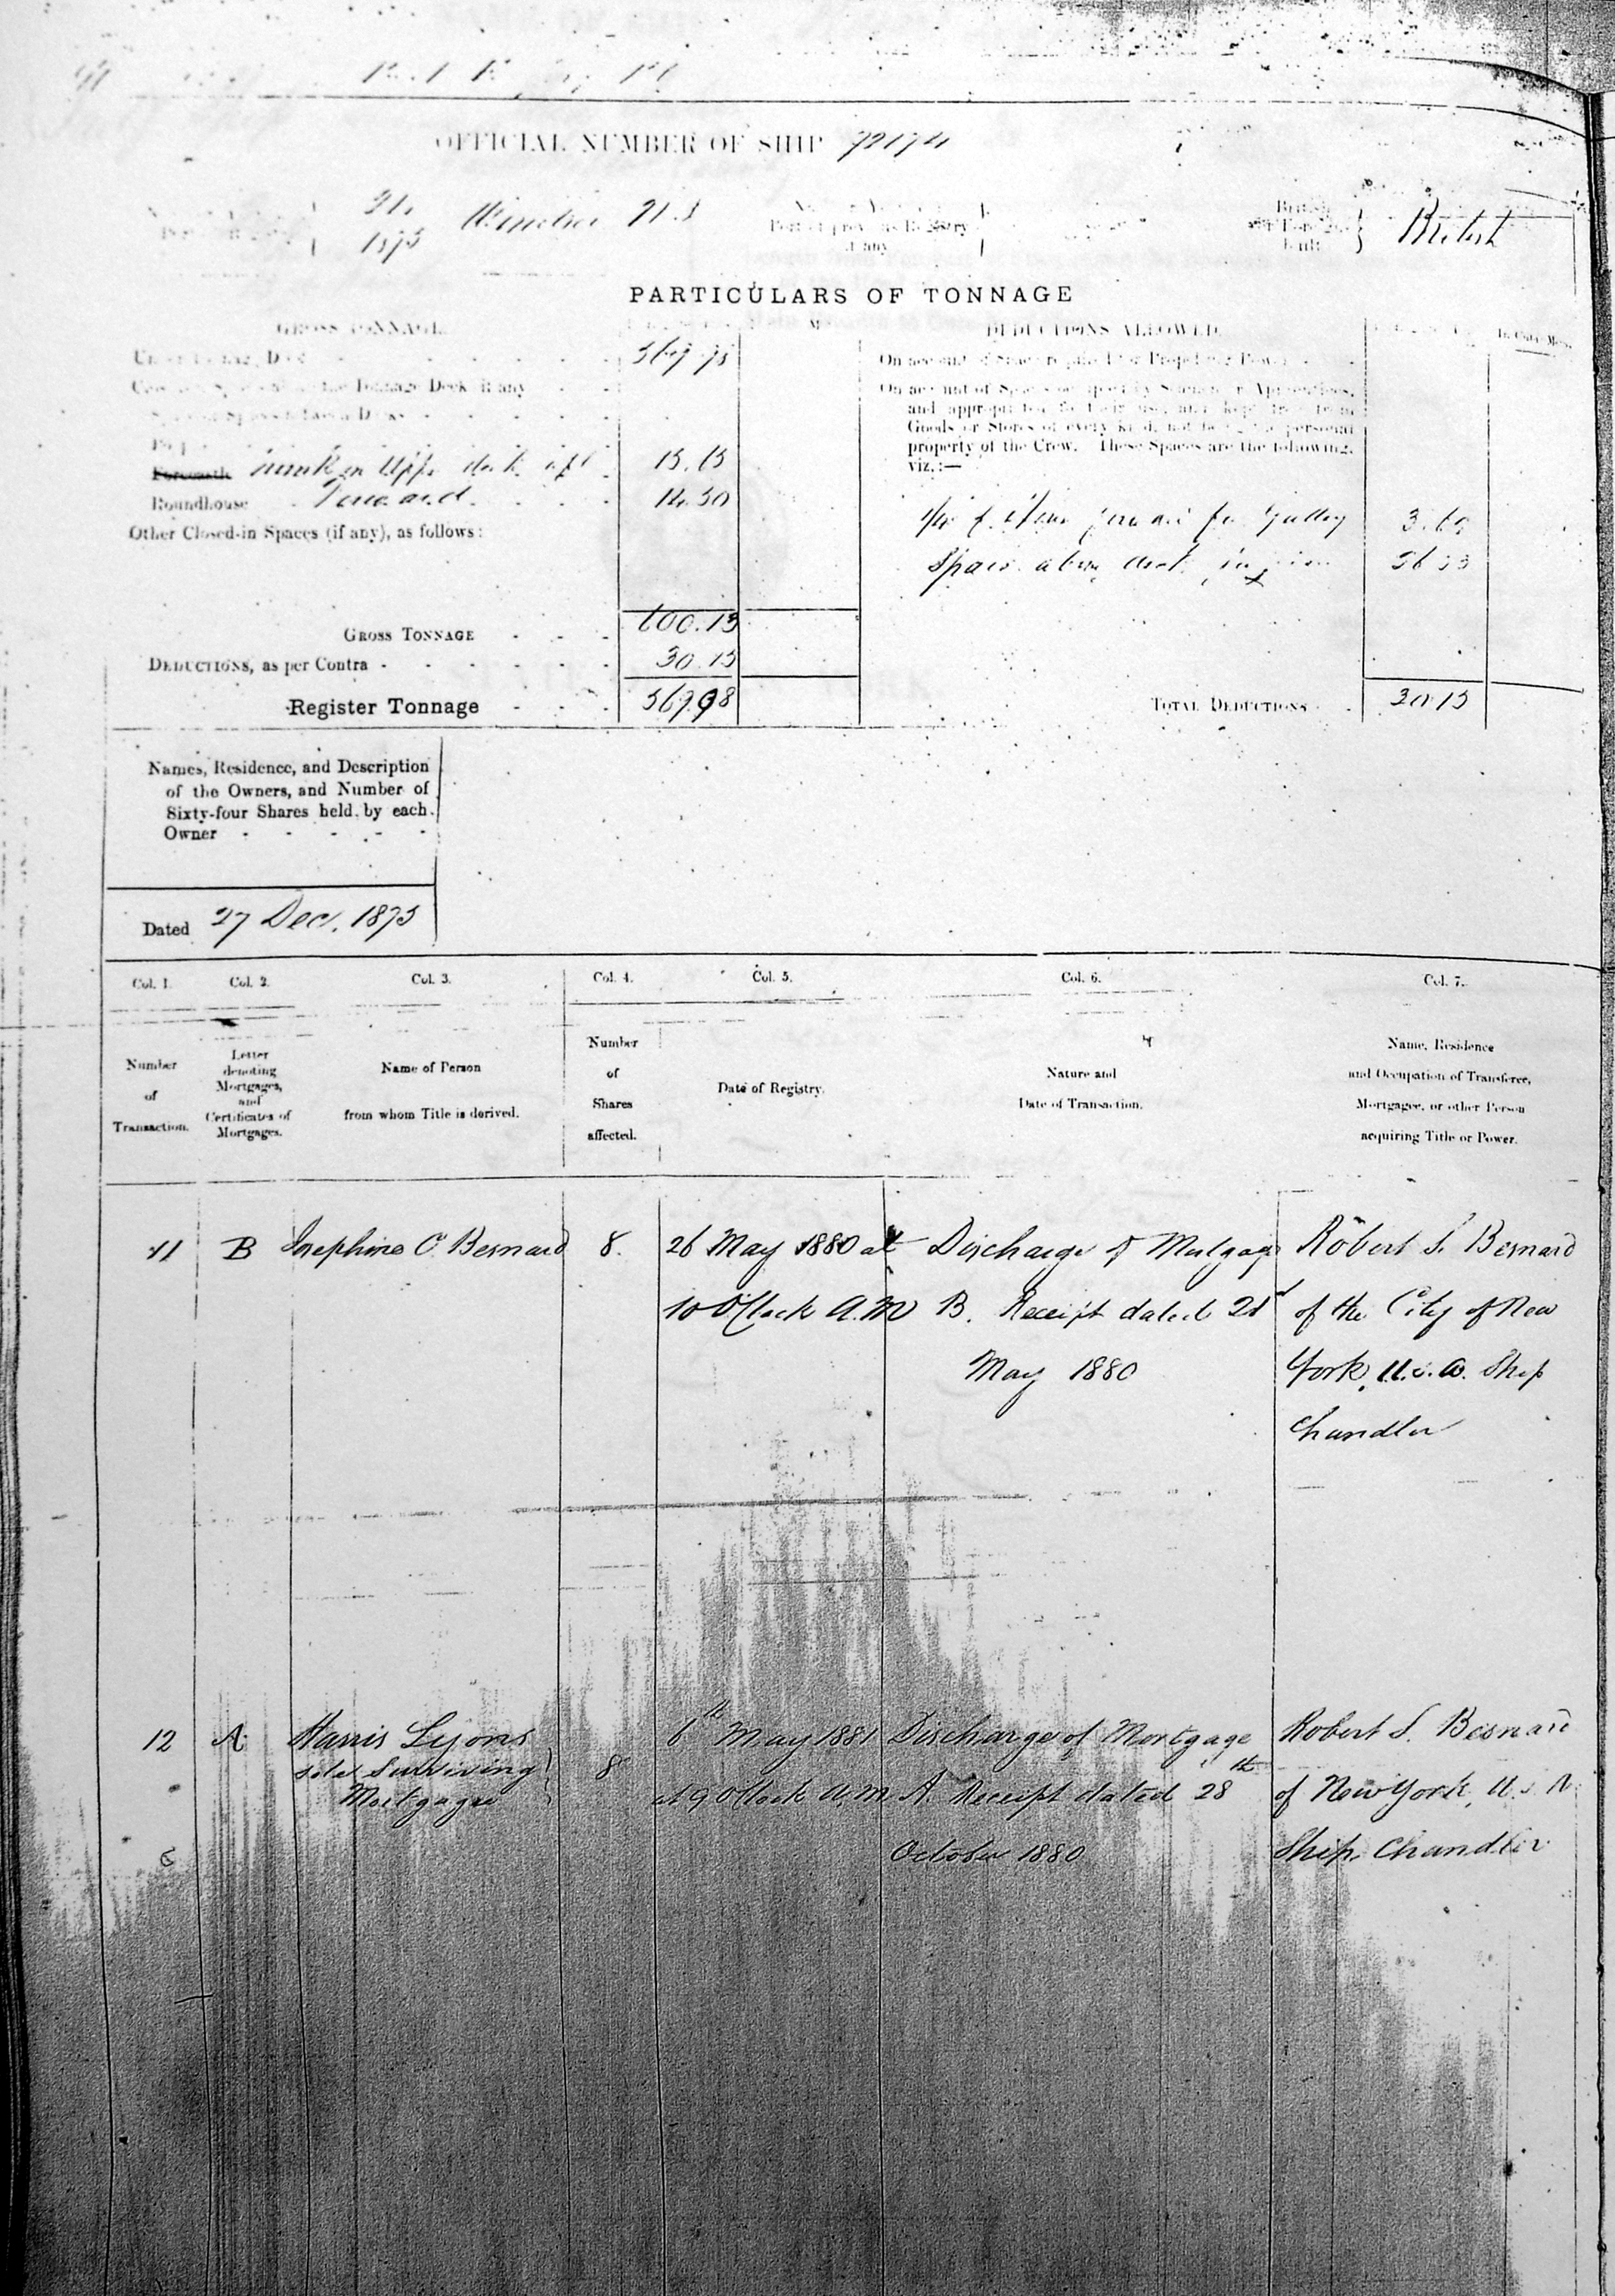 OFFICIAL NUMBER OF SHIP 72174
1875 Windsor N.S
Port of previous Registry
if any
British
or Foreign
Built
British
PARTICULARS OF TONNAGE
GROSS TONNAGE.
DEDUCTIONS ALLOWED.
In Cubic Metres.
Under Tonnage Deck - - - - - - 569.75
On account of Space required for Propelling Power - -
Closed-in Spaces above the Tonnage Deck, if any - -
Space or Spaces between Decks - - - - -
On account of Spaces occupied by Seamen or Apprentices,
and appropriated to their use, and kept free from
Goods or Stores of every kind, not being the personal
property of the Crew. These Spaces are the following,
viz.:—
Poop
Forecastle in Upper deck aft 15.
Roundhouse Forward 14.50
Other Closed-in Spaces (if any), as follows:
for Galley 3.60
Space above deck
GROSS TONNAGE - - - 600.13
DEDUCTIONS, as per Contra - - - - - 30.15
Register Tonnage - - - 569.98
TOTAL DEDUCTIONS - 30.15
Names, Residence, and Description
of the Owners, and Number of
Sixty-four Shares held by each
Owner - - - - -
Dated 27 Dec. 1875
Col. 1. Col. 2. Col. 3. Col. 4. Col. 5. Col. 6. Col. 7.
Number
of
Transaction.
Letter
denoting
Mortgages,
and
Certificates of
Mortgages.
Name of Person
from whom Title is derived.
Number
of
Shares
affected.
Date of Registry.
Nature and
Date of Transaction.
Name, Residence
and Occupation of Transferee,
Mortgagee, or other Person
acquiring Title or Power.
11 B Josephine C. Besnard 8. 26 May 1880 at Discharge of Mortgage Robert S. Besnard
10 O'Clock A.M B. Receipt dated 21 of the City of New
May 1880 York, U.S.A. Ship
Chandler
12 A Harris Lyons 6th May 1881 Discharge of Mortgage Robert S. Besnard
sole Surviving 8
Mortgagee at 9 O'Clock A.M A. Receipt dated 28th of New York, U.S.A
October 1880 Ship Chandler